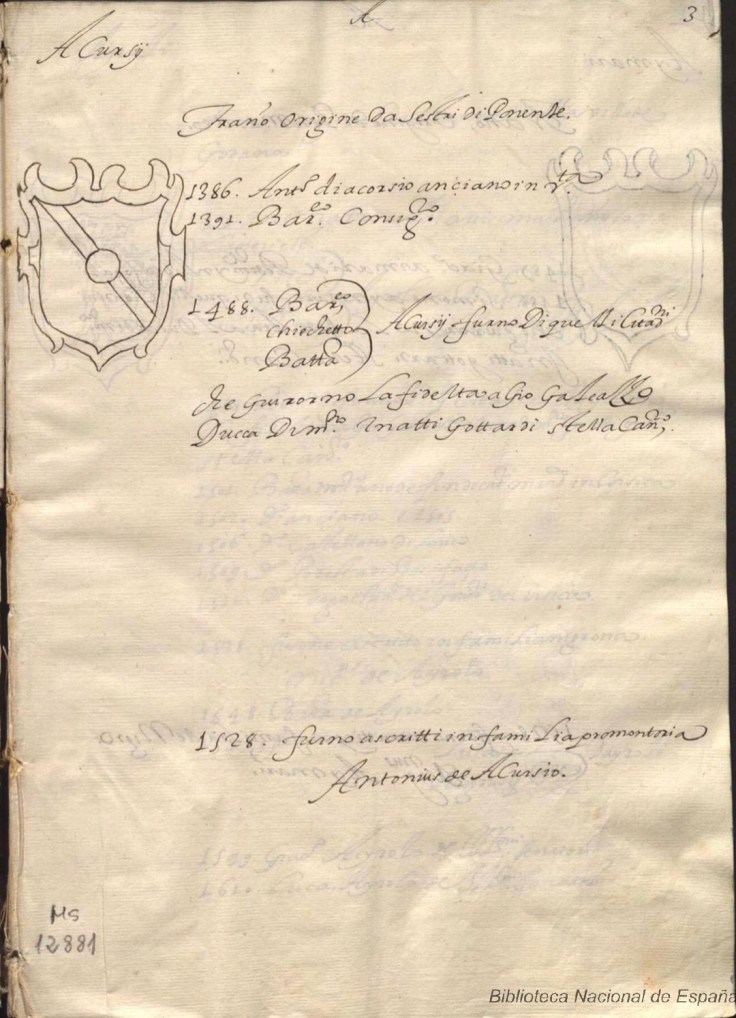 A
3
A Cursij
Trano origine Da Sestri Di Ponente.
1386. Ant.o di acorsio anciano in
1391. Bar.eo Consig.o
1488. Bar.eo
Chiechetto
Batt.a
A Cursij furno Di que Militari
che Giurorno La fidelta a Gio Galeazzo
Ducca Di M.no In atti Gottardi Stella Can.o
1528. furno ascritti in famiLia promontoria
Antonius de A Cursio.
Ms
12881
Biblioteca Nacional de España